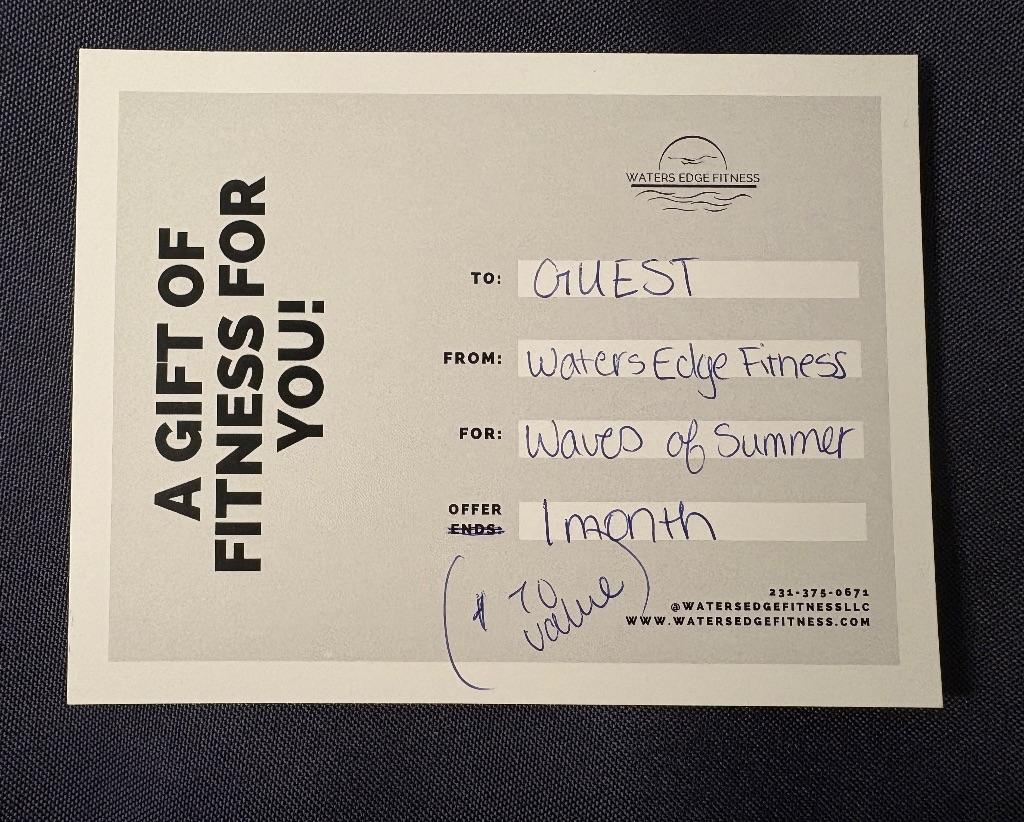 A GIFT OF
FITNESS FOR
YOU!
WATERS EDGE FITNESS
TO: GUEST
FROM: Waters Edge Fitness
FOR: Waves of Summer
OFFER
ENDS: 1 month
($ 70
value)
231-375-0671
@WATERSEDGEFITNESSLLC
WWW.WATERSEDGEFITNESS.COM